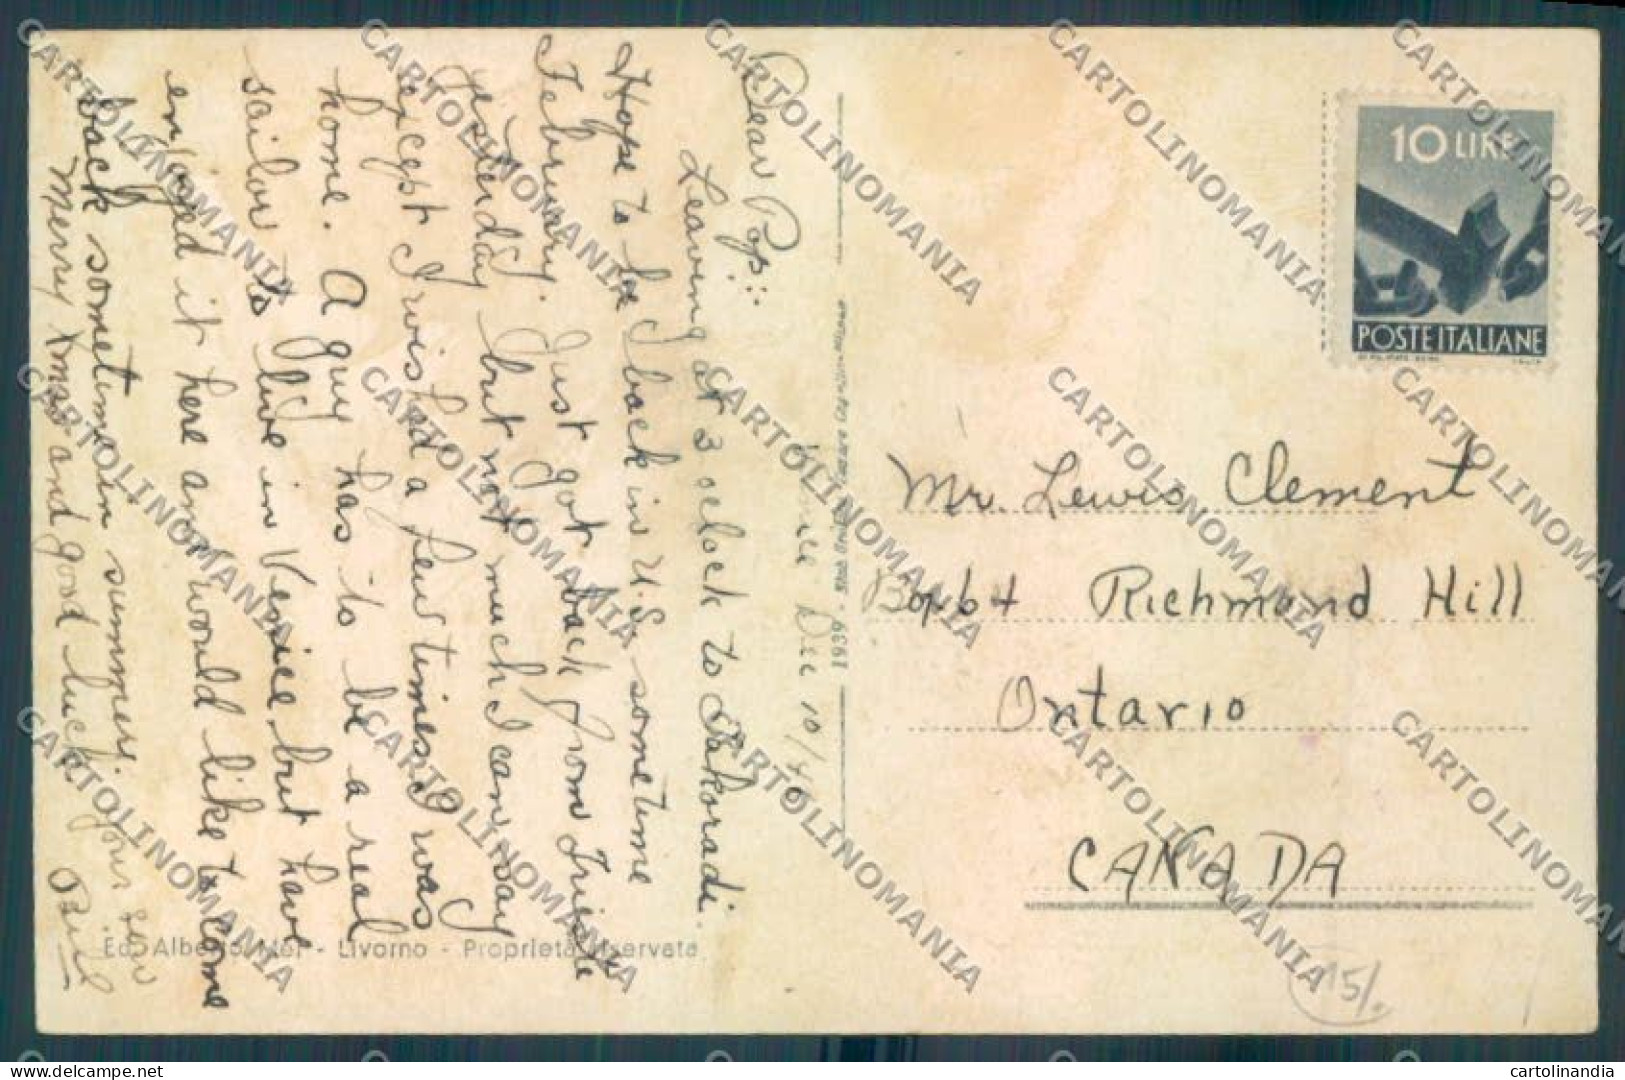 Venice Dec 10/46
Dear Pops:.
Leaving at 3 oclock to Takoradi.
Hope to be back in U.S. sometime
February. Just got back from Trieste
yesterday but not much I can say
except I wished a few times I was
home. A guy has to be a real
sailor to live in Venice but have
enjoyed it here and would like to come
back sometime in summer. your son
Merry Xmas and good luck Paul
10 LIRE
POSTE ITALIANE
Mr. Lewis Clement
Richmond Hill
Ontario
CANADA
Ed. Alberto Mei - Livorno - Proprietà riservata
1939
15/.
CARTOLINOMANIA
delcampe.net
cartolinandia